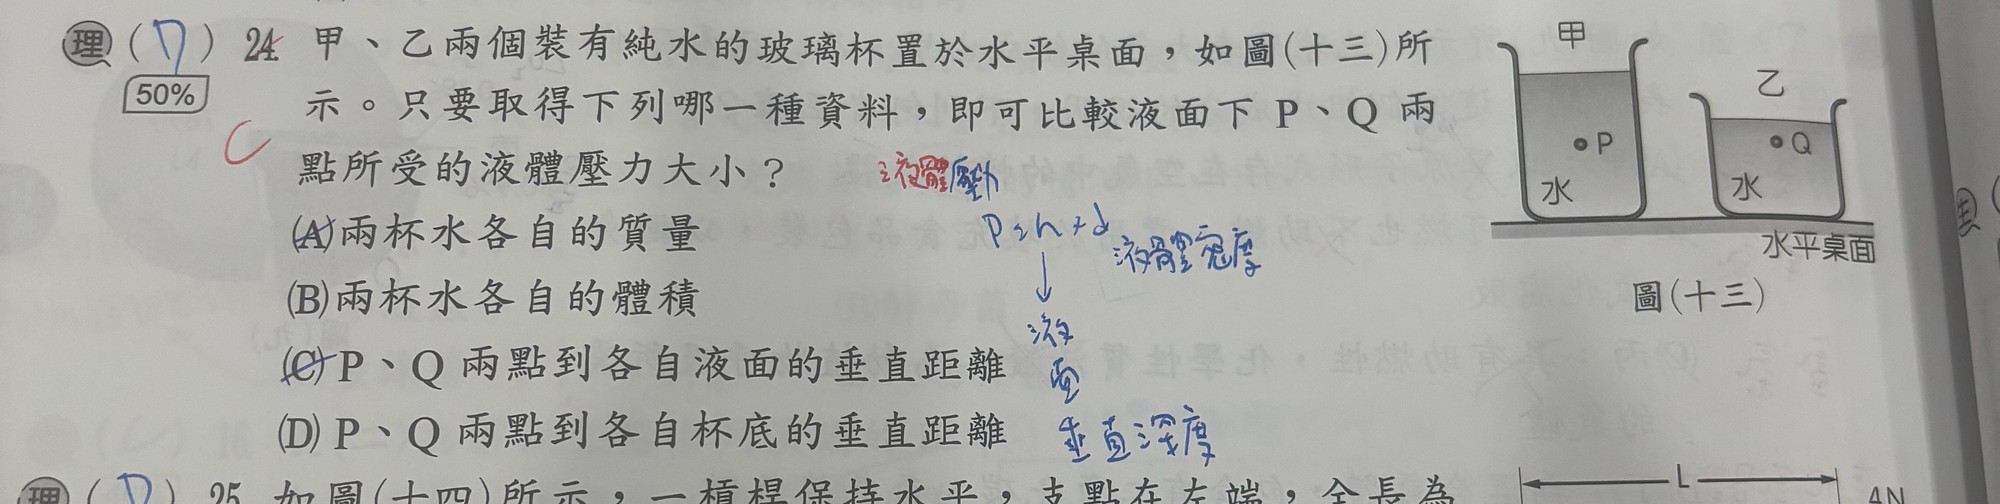 理 (D) 24 甲、乙兩個裝有純水的玻璃杯置於水平桌面，如圖(十三)所
50%
示。只要取得下列哪一種資料，即可比較液面下 P、Q 兩
C
點所受的液體壓力大小？
液體壓力
(A)兩杯水各自的質量
P=h×d
液體密度
(B)兩杯水各自的體積
液
面
垂直深度
(C)P、Q 兩點到各自液面的垂直距離
(D)P、Q 兩點到各自杯底的垂直距離
甲
乙
P
Q
水
水
水平桌面
圖(十三)
理 (D) 25 如圖(十四)所示，一槓桿保持水平，支點在左端，全長為
L
4N